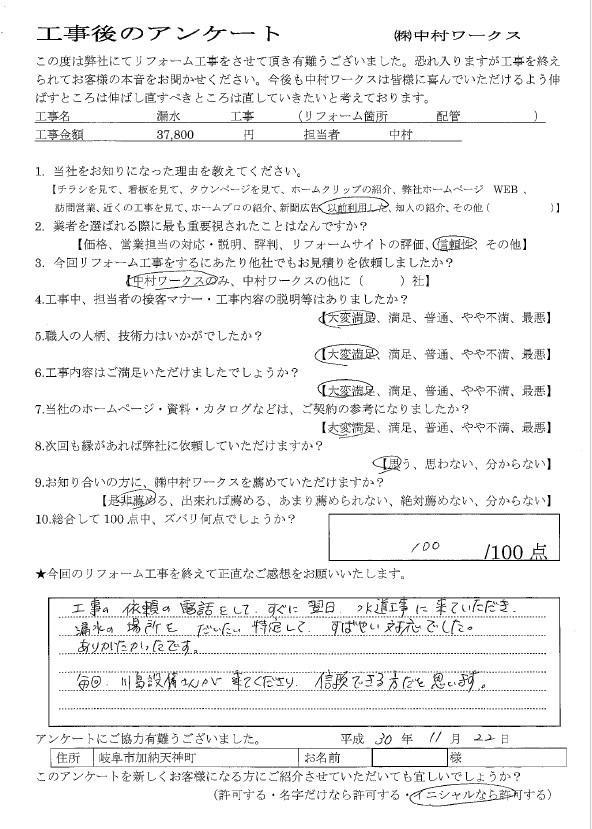 工事後のアンケート ㈱中村ワークス
この度は弊社にてリフォーム工事をさせて頂き有難うございました。恐れ入りますが工事を終え
られてお客様の本音をお聞かせください。今後も中村ワークスは皆様に喜んでいただけるよう伸
ばすところは伸ばし直すべきところは直していきたいと考えております。
工事名 漏水 工事 （リフォーム箇所 配管 ）
工事金額 37,800 円 担当者 中村
1. 当社をお知りになった理由を教えてください。
【チラシを見て、看板を見て、タウンページを見て、ホームクリップの紹介、弊社ホームページ WEB 、
訪問営業、近くの工事を見て、ホームプロの紹介、新聞広告、以前利用した、知人の紹介、その他（ ）】
2. 業者を選ばれる際に最も重要視されたことはなんですか？
【価格、営業担当の対応・説明、評判、リフォームサイトの評価、信頼性、その他】
3. 今回リフォーム工事をするにあたり他社でもお見積りを依頼しましたか？
【中村ワークスのみ、中村ワークスの他に（ ）社】
4.工事中、担当者の接客マナー・工事内容の説明等はありましたか？
【大変満足、満足、普通、やや不満、最悪】
5.職人の人柄、技術力はいかがでしたか？
【大変満足、満足、普通、やや不満、最悪】
6.工事内容はご満足いただけましたでしょうか？
【大変満足、満足、普通、やや不満、最悪】
7.当社のホームページ・資料・カタログなどは、ご契約の参考になりましたか？
【大変満足、満足、普通、やや不満、最悪】
8.次回も縁があれば弊社に依頼していただけますか？
【思う、思わない、分からない】
9.お知り合いの方に、㈱中村ワークスを薦めていただけますか？
【是非薦める、出来れば薦める、あまり薦められない、絶対薦めない、分からない】
10.総合して100点中、ズバリ何点でしょうか？
100 /100 点
★今回のリフォーム工事を終えて正直なご感想をお願いいたします。
工事の依頼の電話をして、すぐに翌日、水道工事に来ていただき、
漏水の場所をだいたい特定して、すばやい対応でした。
ありがたかったです。
毎回、川島設備さんが来てくださり、信頼できる方だと思います。
アンケートにご協力有難うございました。 平成 30 年 11 月 22 日
住所 岐阜市加納天神町 お名前 様
このアンケートを新しくお客様になる方にご紹介させていただいても宜しいでしょうか？
（許可する・名字だけなら許可する・イニシャルなら許可する）